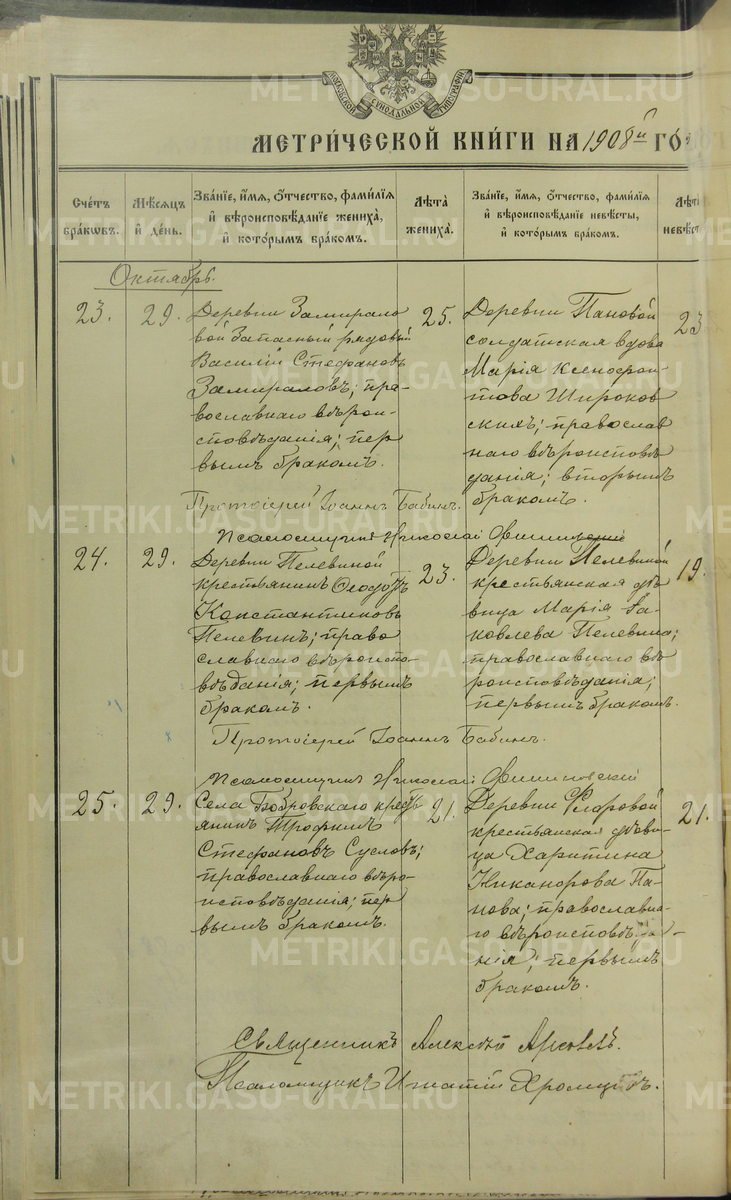 МОСКОВСКОЙ СѴНОДАЛЬНОЙ ТИПОГРАФІИ
МЕТРИ́ЧЕСКОЙ КНИ́ГИ НА 1908й ГО́
Сче́тъ бра́ковъ.
Мѣ́сяцъ и҆ де́нь.
Зва́нїе, и҆́мя, ѻ҆́тчество, фами́лїя и҆ вѣроисповѣ́данїе жениха̀, и҆ кото́рымъ бра́комъ.
Лѣта̀ жениха̀.
Зва́нїе, и҆́мя, ѻ҆́тчество, фами́лїя и҆ вѣроисповѣ́данїе невѣ́сты, и҆ кото́рымъ бра́комъ.
Лѣта̀ невѣ́ст
Октябрь.
23.
29.
Деревни Замирало
вой Запасный рядовый
Василій Стефановъ
Замираловъ; пра-
вославнаго вѣрои-
сповѣданія; пер
вымъ бракомъ.
25.
Деревни Пановой
солдатская вдова
Марія Ксенофон-
това Широков
скихъ; православ
наго вѣроисповѣ
данія; вторымъ
бракомъ.
23
Протоіерей Іоаннъ Бабинъ.
Псаломщикъ Николай
24.
29.
Деревни Пелевиной
крестьянинъ Ѳеодотъ
Константиновъ
Пелевинъ; право
славнаго вѣроиспо
вѣданія; первымъ
бракомъ.
23.
Деревни Пелевиной
крестьянская дѣ
вица Марія Іа-
ковлева Пелевина;
православнаго вѣ
роисповѣданія;
первымъ бракомъ.
19.
Протоіерей Іоаннъ Бабинъ.
Псаломщикъ Николай
25.
29.
Села Бобровскаго кресть
янинъ Трофимъ
Стефановъ Сусловъ;
православнаго вѣро-
исповѣданія; пер
вымъ бракомъ.
21.
Деревни Фларовой
крестьянская дѣви
ца Харитина
Никанорова Па-
нова; православна-
го вѣроисповѣда-
нія; первымъ
бракомъ.
21.
Священникъ Алексѣй
Псаломщикъ Игнатій Хромцовъ.
METRIKI.GASO-URAL.RU